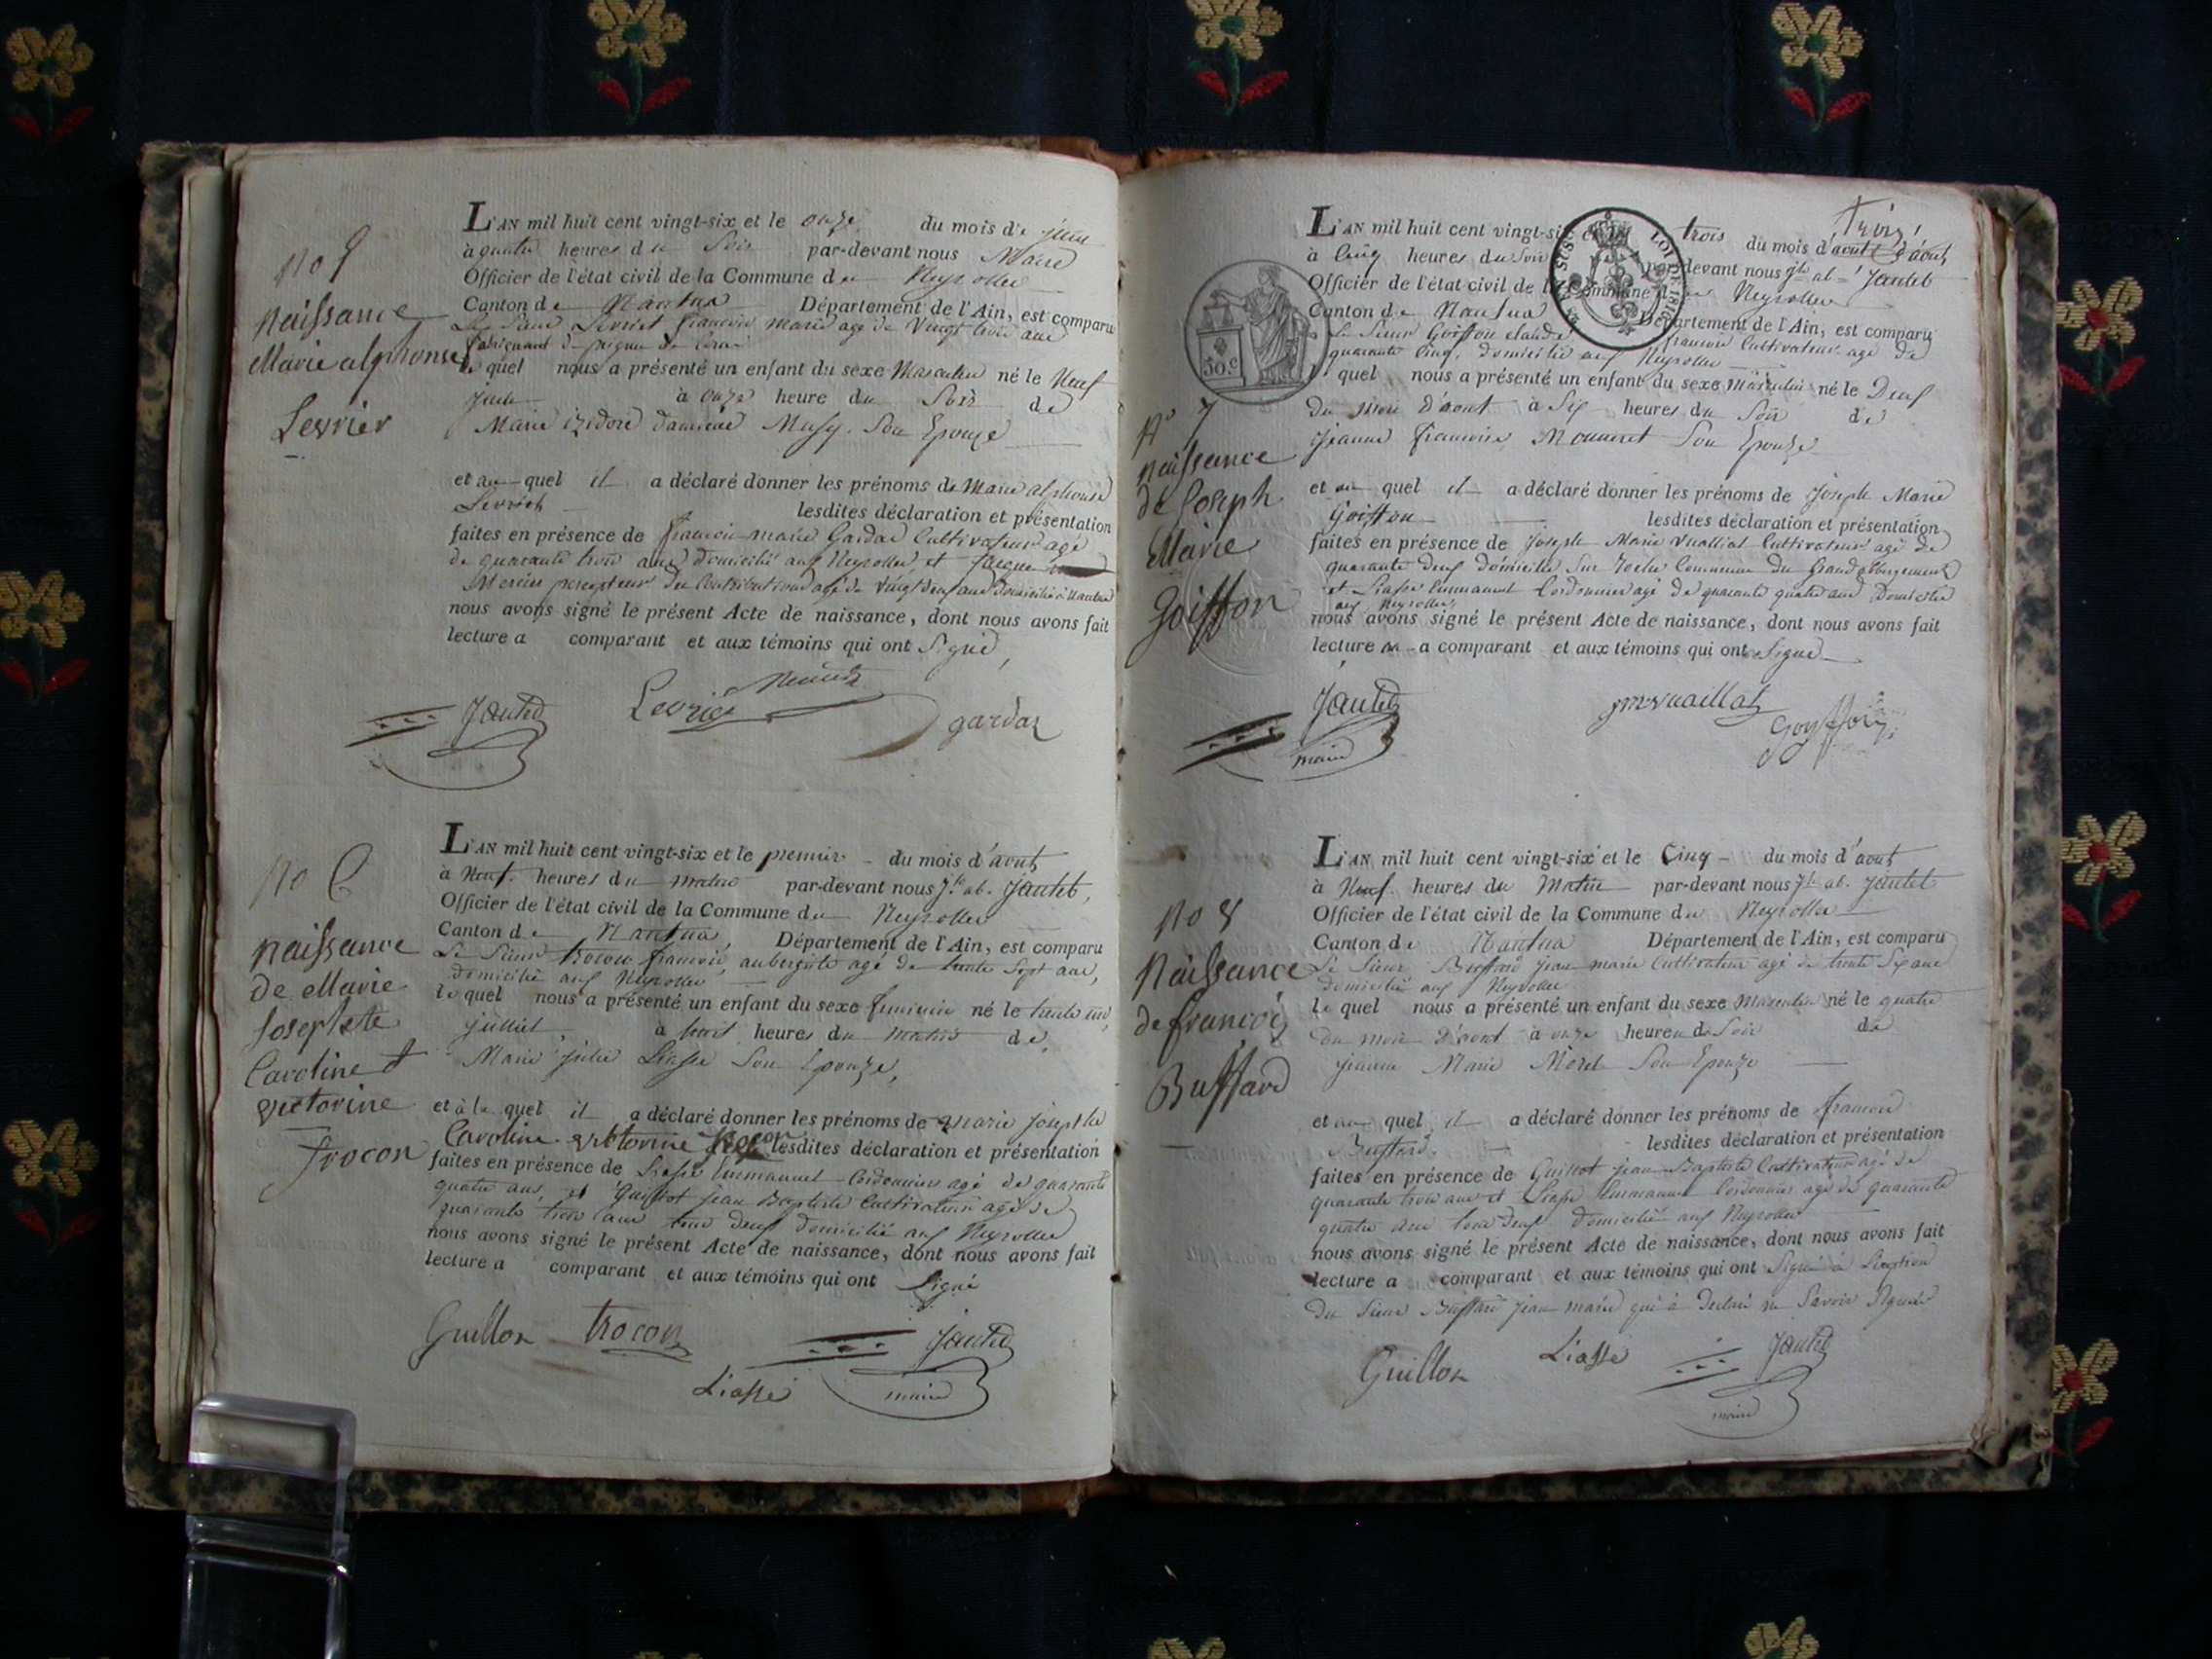 No 5
Naissance
Marie alphonse
Levrier
L'AN mil huit cent vingt-six et le onze du mois de juin
à quatre heures du Soir par-devant nous Maire
Officier de l'état civil de la Commune de Neyrolles
Canton de Nantua Département de l'Ain, est comparu
Le Sieur Levrier françois marie agé de Vingt trois ans
fabriquant de peignes de corne
le quel nous a présenté un enfant du sexe Masculin né le Neuf
juin à onze heure du Soir de
Marie izidore damiene Musy Son Epouze
et au quel il a déclaré donner les prénoms de Marie alphonse
Levrier lesdites déclaration et présentation
faites en présence de françois marie Gardas Cultivateur agé
de quarante trois ans domicilié aux Neyrolles, et
Mercier percepteur des Contributions agé de vingt deux ans domicilié à Nantua
nous avons signé le présent Acte de naissance, dont nous avons fait
lecture a comparant et aux témoins qui ont Signé,
Jantet Levrier Mercier gardas
No 6
naissance
de Marie
Josephte
Caroline
victorine
Trocon
L'AN mil huit cent vingt-six et le premier du mois d'aout
à Neuf heures du matin par-devant nous Jh ab. Jantet,
Officier de l'état civil de la Commune de Neyrolles
Canton de Nantua, Département de l'Ain, est comparu
Le Sieur trocon françois, aubergiste agé de trente Sept ans,
domicilié aux Neyrolles
le quel nous a présenté un enfant du sexe feminin né le trente un
juillet à heures du matin de
Marie julie Liasse Son Epouze,
et à la quel il a déclaré donner les prénoms de Marie josephte
Caroline victorine trocon lesdites déclaration et présentation
faites en présence de Liasse Emmanuel Cordonnier agé de quarante
quatre ans, et Guillot jean Baptiste Cultivateur agé de
quarante trois ans tous deux domicilié aux Neyrolles
nous avons signé le présent Acte de naissance, dont nous avons fait
lecture a comparant et aux témoins qui ont Signé
Guillon trocon Jantet
Liasse maire
trois
N° 7
naissance
de Joseph
Marie
Goiffon
L'AN mil huit cent vingt-six et le trois du mois d'aout d'aout
à Cinq heures du Soir par-devant nous Jh ab Jantet
Officier de l'état civil de la Commune de Neyrolles
Canton de Nantua Département de l'Ain, est comparu
Le Sieur Goiffon claude françois Cultivateur agé de
quarante Cinq, domicilié aux Neyrolles
le quel nous a présenté un enfant du sexe Masculin né le Deux
du mois d'aout à Six heures du Soir de
jeanne françoise Mounret Son Epouze
et au quel il a déclaré donner les prénoms de joseph Marie
Goiffon lesdites déclaration et présentation
faites en présence de joseph Marie Vuaillat Cultivateur agé de
quarante deux domicilié Sur Roche Commune du grand abergement
et Liasse Emmanuel Cordonnier agé de quarante quatre ans Domicilié
aux Neyrolles
nous avons signé le présent Acte de naissance, dont nous avons fait
lecture au comparant et aux témoins qui ont Signé
Jantet jm vuaillat goyffon
maire
LOI DE 1816
EN SUS
50 c
No 8
Naissance
de françois
Buffard
L'AN mil huit cent vingt-six et le Cinq du mois d'aout
à Neuf heures du Matin par-devant nous Jh ab. Jantet
Officier de l'état civil de la Commune de Neyrolles
Canton de Nantua Département de l'Ain, est comparu
Le Sieur Buffard jean marie Cultivateur agé de trente Six ans
domicilié aux Neyrolles
le quel nous a présenté un enfant du sexe Masculin né le quatre
du mois d'aout à onze heures du Soir de
jeanne Marie Morel Son Epouze
et au quel il a déclaré donner les prénoms de françois
Buffard lesdites déclaration et présentation
faites en présence de Guillot jean Baptiste Cultivateur agé de
quarante trois ans et Liasse Emmanuel Cordonnier agé de quarante
quatre ans tous deux domicilié aux Neyrolles
nous avons signé le présent Acte de naissance, dont nous avons fait
lecture a comparant et aux témoins qui ont Signé à L'exeption
du Sieur Buffard jean marie qui à declaré ne Savoir Signer
Guillon Liasse Jantet
maire